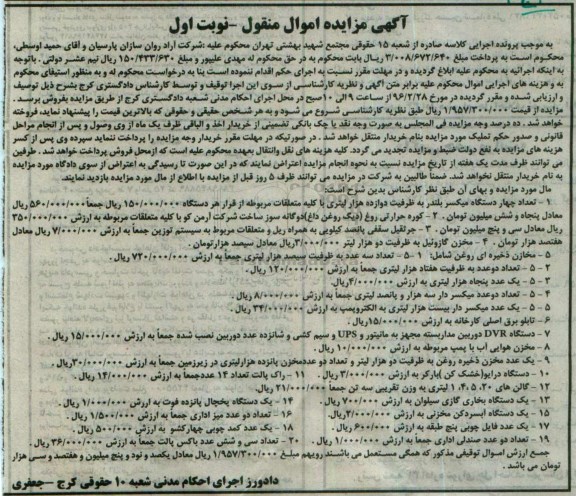 آگهی مزایده اموال منقول -نوبت اول
به موجب پرونده اجرایی کلاسه صادره از شعبه ۱۵ حقوقی مجتمع شهید بهشتی تهران محکوم علیه :شرکت آراد روان سازان پارسیان و آقای حمید اوسطی،
محکوم است به پرداخت مبلغ ۳/۰۰۸/۶۷۲/۶۴۰ ریال بابت محکوم به در حق محکوم له مهدی علیپور و مبلغ ۱۵۰/۴۳۳/۶۳۰ ریال نیم عشر دولتی . باتوجه
به اینکه اجرائیه به محکوم علیه ابلاغ گردیده و در مهلت مقرر نسبت به اجرای حکم اقدام ننموده است بنا به درخواست محکوم له و به منظور استیفای محکوم
به و هزینه های اجرایی اموال محکوم علیه برابر متن آگهی و نظریه کارشناسی از سوی این اجرا توقیف و توسط کارشناس دادگستری کرج بشرح ذیل توصیف
و ارزیابی شده و مقرر گردیده در مورخ ۹۶/۲/۲۸ از ساعت ۹ الی ۱۰ صبح در محل اجرای احکام مدنی شعبه دادگستری کرج از طریق مزایده بفروش برسد .
مزایده از قیمت ۱/۹۵۷/۳۰۰/۰۰۰ ریال طبق نظریه کارشناسی شروع می شود و به هر شخص حقیقی و حقوقی که بالاترین قیمت را پیشنهاد نماید، فروخته
خواهد شد . ده درصد وجه مزایده فی المجلس به صورت وجه نقد یا چک بانکی تضمینی از خریدار اخذ و الباقی ظرف یک ماه از وی وصول و پس از انجام مراحل
قانونی و صدور حکم تملیک مورد مزایده بنام خریدار منتقل خواهد شد . در صورتیکه در مهلت مقرر خریدار وجه مزایده را پرداخت ننماید سپرده وی پس از کسر
هزینه های مزایده به نفع دولت ضبط و مزایده تجدید می گردد. کلیه هزینه های نقل وانتقال بعهده محکوم علیه است که از محل فروش پرداخت خواهد شد. طرفین
می توانند ظرف مدت یک هفته از تاریخ مزایده نسبت به نحوه انجام مزایده اعتراض نمایند که در این صورت تا رسیدگی به اعتراض از سوی دادگاه مورد مزایده
به نام خریدار منتقل نخواهد شد. ضمنا طالبین به شرکت در مزایده می توانند ظرف ۵ روز قبل از مزایده با اطلاع از مال مورد مزایده بازدید نمایند.
مال مورد مزایده و بهای آن طبق نظر کارشناس بدین شرح است:
۱ - تعداد چهار دستگاه میکسر بلندر به ظرفیت دوازده هزار لیتری با کلیه متعلقات مربوطه از قرار هر دستگاه ۱۵۰/۰۰۰/۰۰۰ ریال جمعاً ۵۶۰/۰۰۰/۰۰۰ ریال
معادل پنجاه و شش میلیون تومان . ۲ - کوره حرارتی روغ (دیک روغن داغ)دوگانه سوز ساخت شرکت آرمن کو با کلیه متعلقات مربوطه به ارزش ۳۵۰/۰۰۰/۰۰۰
ریال معادل سی و پنج میلیون تومان . ۳ - جرثقیل سقفی پانصد کیلویی به همراه ریل و متعلقات مربوط به سیستم توزین جمعاً به ارزش ۷/۰۰۰/۰۰۰ ریال معادل
هفتصد هزار تومان . ۴ - مخزن گازوئیل به ظرفیت دو هزار لیتر ۳/۰۰۰/۰۰۰ریال معادل سیصد هزارتومان .
۵ - مخازن ذخیره ای روغن شامل: ۱ - ۵ - تعداد سه عدد به ظرفیت سیصد هزار لیتری جمعاً به ارزش ۷۲۰/۰۰۰/۰۰۰ ریال .
۲ - ۵ - تعداد دوعدد به ظرفیت هفتاد هزار لیتری جمعاً به ارزش ۱۲۰/۰۰۰/۰۰۰ ریال .
۳ - ۵ - یک عدد پنجاه هزار لیتری به ارزش ۴/۰۰۰/۰۰۰ریال.
۴ - ۵ - تعداد دوعدد میکسر دار سه هزار و پانصد لیتری جمعاً به ارزش ۸/۰۰۰/۰۰۰ ریال .
۵ - ۵ - یک عدد میکسر دار بیست هزار لیتری به الکتروپمپ به ارزش ۳۴/۰۰۰/۰۰۰ ریال .
۶ - تابلو برق اصلی کارخانه به ارزش ۱۵/۰۰۰/۰۰۰ ریال.
۷ - دستگاه DVR دوربین مداربسته مجهز به مانیتور و UPS و سیم کشی و شانزده عدد دوربین نصب شده جمعاً به ارزش ۱۵/۰۰۰/۰۰۰ ریال .
۸ - مخزن هوایی آب با پمپ مربوطه به ارزش ۱۰/۰۰۰/۰۰۰ ریال .
۹ - یک عدد مخزن ذخیره روغن به ظرفیت دو هزار لیتر و تعداد دو عددمخزن پانزده هزارلیتری در زیرزمین جمعاً به ارزش ۳۰/۰۰۰/۰۰۰ریال .
۱۰ - دستگاه درایو(خشک کن )بارکر به ارزش ۳/۰۰۰/۰۰۰ ریال . ۱۱ - راک پالت تعداد ۱۴ عددجمعاً به ارزش ۱۴/۰۰۰/۰۰۰ ریال .
۱۲ - گالن های ۲۰، ۵، ۴، ۱ لیتری به وزن تقریبی سه تن جمعاً ۲۱/۰۰۰/۰۰۰ ریال .
۱۳ - یک دستگاه بخاری گازی سیلوان به ارزش ۷۰۰/۰۰۰ ریال . ۱۴ - یک دستگاه یخچال پانزده فوت به ارزش ۱/۰۰۰/۰۰۰ ریال .
۱۵ - یک دستگاه آبسردکن مخزنی به ارزش ۲/۰۰۰/۰۰۰ریال. ۱۶ - تعداد دو عدد میز اداری جمعاً به ارزش ۱/۵۰۰/۰۰۰ ریال .
۱۷ - یک عدد فایل چوبی پنج طبقه به ارزش ۶۰۰/۰۰۰ ریال . ۱۸ - یک عدد کمد چوبی چهارکشو به ارزش ۵۰۰/۰۰۰ ریال .
۱۹ - تعداد دو عدد صندلی اداری جمعاً به ارزش ۱/۰۰۰/۰۰۰ ریال . ۲۰ - تعداد سی و شش عدد باکس پالت جمعاً به ارزش ۳۶/۰۰۰/۰۰۰ ریال .
جمع ارزش امـوال توقیفی مذکور که همگی مستعمل می باشند رویهم مبلغ ۱/۹۵۷/۳۰۰/۰۰۰ ریال معادل یکصد و نود و پنج میلیون و هفتصد و سی هزار
تومان می باشد .
دادورز اجرای احکام مدنی شعبه ۱۰ حقوقی کرج - جعفری